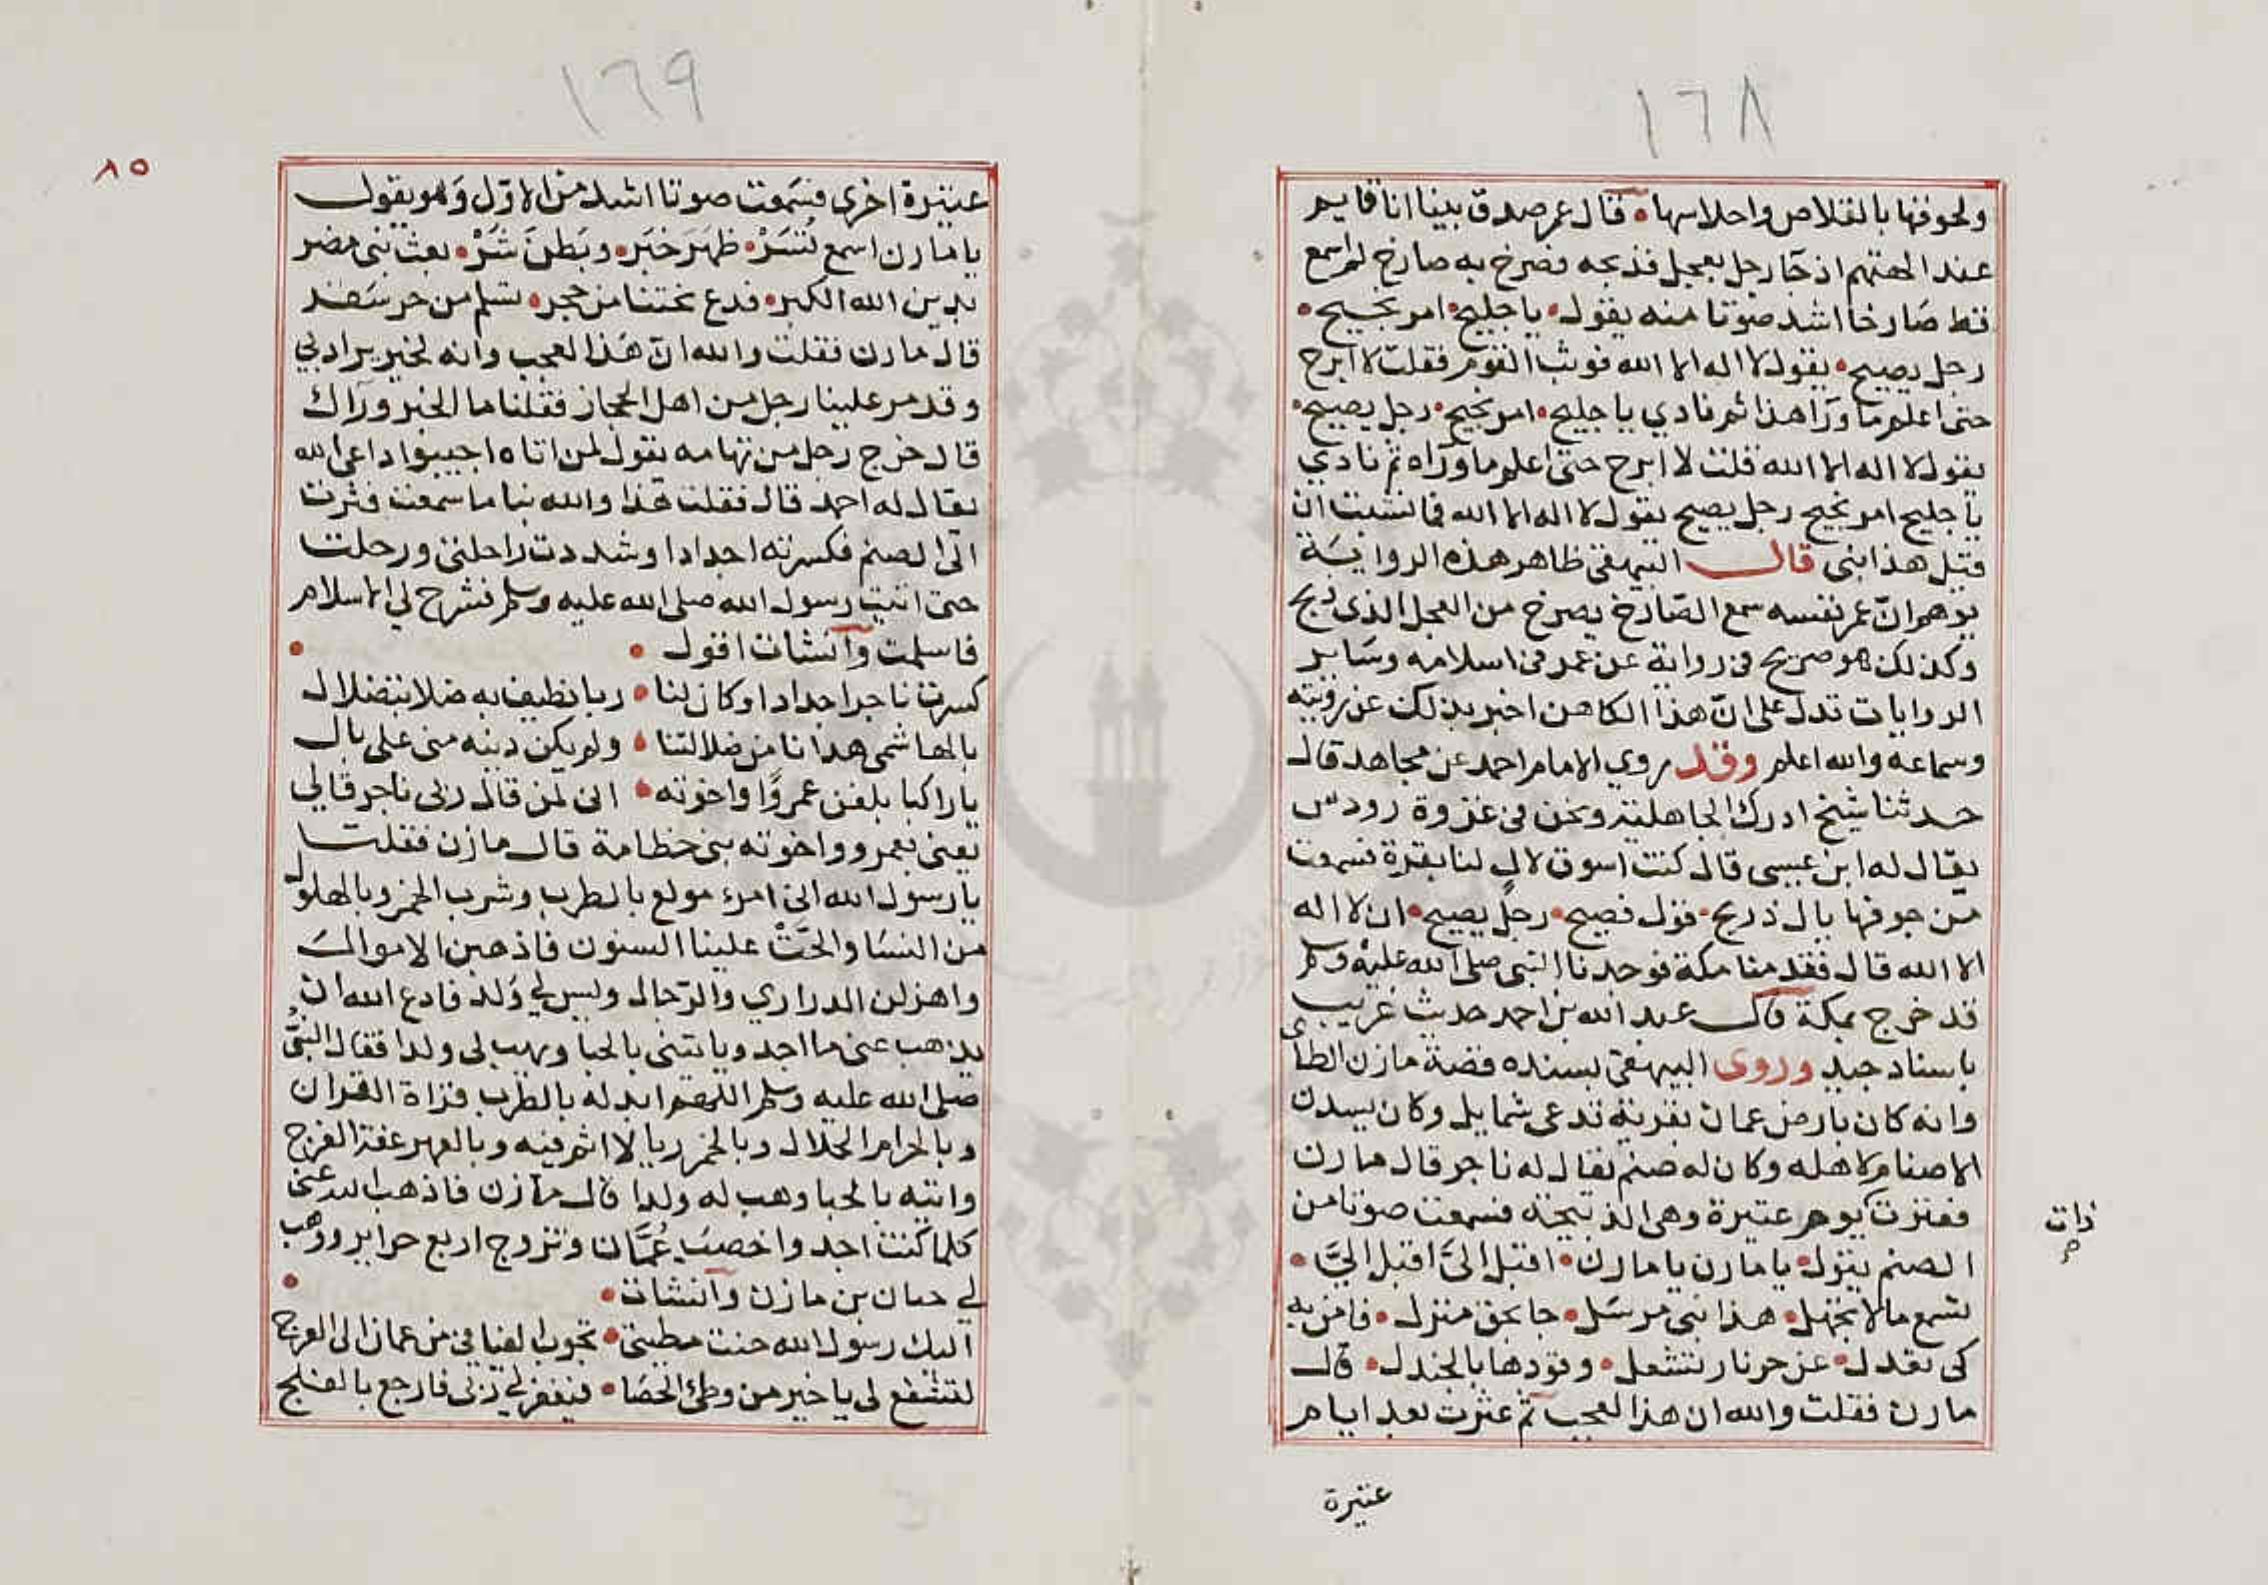 ١٦٨
ولحوقها بالقلاص واحلاسها • قال عمر صدق بينا انا قايم
عند الهتهم اذ جآ رجل بعجل فذبحه فصرخ به صارخ لم اسمع
قط صارخا اشد صوتا منه يقول • يا جليح • امر نجيح •
رجل يصيح • يقول لا اله الا الله فوثب القوم فقلت لا ابرح
حتى اعلم ما ورآ هذا ثم نادي يا جليح • امر نجيح • رجل يصيح •
يقول لا اله الا الله قلت لا ابرح حتى اعلم ما ورآه ثم نادي
يا جليح امر نجيح رجل يصيح يقول لا اله الا الله فما نشبت ان
قيل هذا نبى قال البيهقى ظاهر هذه الرواية
يوهم انّ عمر نفسه سمع الصّارخ يصرخ من العجل الذى ذبح
وكذلك هو صريح فى رواية عن عمر فى اسلامه وسَاير
الروايات تدل على انّ هذا الكاهن اخبر بذلك عن رؤيته
وسماعه والله اعلم وقد روي الامام احمد عن مجاهد قال
حدثنا شيخ ادرك الجاهلية ونحن فى غزوة رودس
يقال له ابن عبسى قال كنت اسوق لال لنا بقرة فسمعت
من جوفها يال ذريح • قول فصيح • رجل يصيح • ان لا اله
الا الله قال فقدمنا مكة فوجدنا النبى صلى الله عليه وسلم
قد خرج بمكة قال عبد الله بن احمد حديث غريب
باسناد جيد وروى البيهقى بسنده قصة مازن الطاى
وانه كان بارض عمان بقرية تدعى شمايل وكان يسدن
الاصنام لاهله وكان له صنم يقال له ناجر قال مازن
فعترت يوم عتيرة وهى الذبيحة فسمعت صوتا من
ذات
صح
الصنم يقول • يا مازن يا مازن • اقبل اليَّ اقبل اليَّ •
تسمع ما لا يجهل • هذا نبى مرسَل • جا بحق منزل • فامن به
كى تعدل • عن حر نار تشعل • وقودها بالجندل • قال
مازن فقلت والله ان هذا لعجب ثم عثرت بعد ايام
عتيرة
١٦٩
٨٥
عتيرة اخرى فسَمعت صوتا اشد من الاوّل وَهو يقول
يا مازن اسمع تُسَرْ • ظهَرَ خَبَر • وبَطنَ شَرْ • بعث نبى مضر
بدين الله الكبر • فدع نحتنا من حجر • تسلم من حر سَقر
قال مازن فقلت والله انّ هَذا لعجب وانه لخير يراد بي
وقدم علينا رجل من اهل الحجاز فقلنا ما الخبر ورآك
قال خرج رجل من تهامه يقول لمن اتاه اجيبوا داعى الله
يقال له احمد قال فقلت هَذا والله نبا ما سمعت فثرت
الى الصنم فكسرته اجدادا وشددت راحلتى ورحلت
حتى اتيت رسول الله صلى الله عليه وسلم فشرح لي الاسلام
فاسلمت وآنشات اقول •
كسرت ناجر اجدادا وكان لنا • ربا نطيف به ضلا بتضلال
بالهاشمى هدانا من ضلالتنا • ولم يكن دينه منى على بال
يا راكبا بلغن عمروًا واخوته • انى لمن قال ربى ناجر قالي
يعنى بعمرو واخوته بنى خطامة قال مازن فقلت
يا رسول الله انى امرء مولع بالطرب وشرب الخمر وبالهلوك
من النسَا والحَّتْ علينا السنون فاذهبن الاموالَ
واهزلن الدراري والرّجال وليس لي وَلد فادع الله ان
يذهب عنى ما اجد وياتنى بالحيا ويهب لى ولدا فقال النبىُّ
صلى الله عليه وسلم اللهم ابدله بالطرب قراة القران
وبالحرام الحلال وبالخمر ريا لا اثم فيه وبالعهر عفة الفرج
واتيه بالحيا وهب له ولدا قال مازن فاذهب الله عنى
كلما كنت اجد واخصبَ عُمَان وتزوج اربع حراير ووهب
لي حيان بن مازن وآنشات •
اليك رسول الله خبت مطيتى • تجوب الفيافى من عمان الى العرج
لتشفع لى يا خير من وطئ الحصَا • فيغفر لي ربى فارجع بالفلج